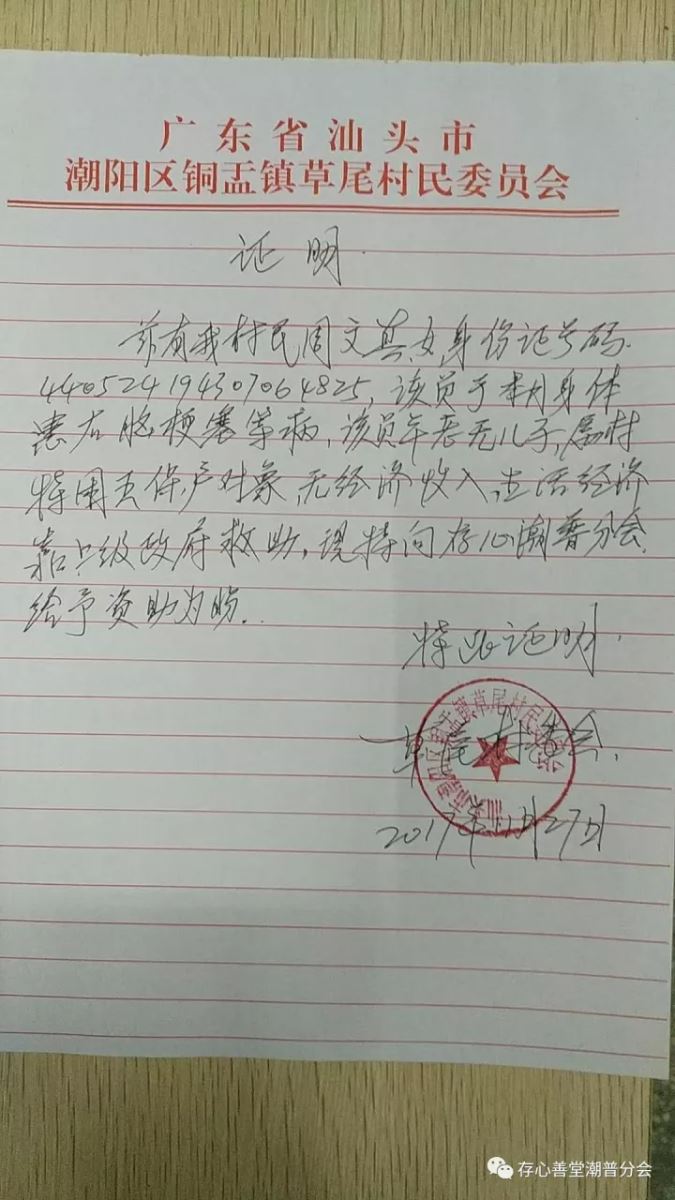 广东省汕头市
潮阳区铜盂镇草尾村民委员会
证明
兹有我村民周文其,女,身份证号码
440524194307064825,该员于本月身体
患右脑梗塞等病,该员年老无儿子,属村
特困五保户对象,无经济收入,生活经济
靠上级政府救助,现特向存心潮普分会
给予资助为盼.
特此证明.
草尾村委会.
2017年11月27日
存心善堂潮普分会